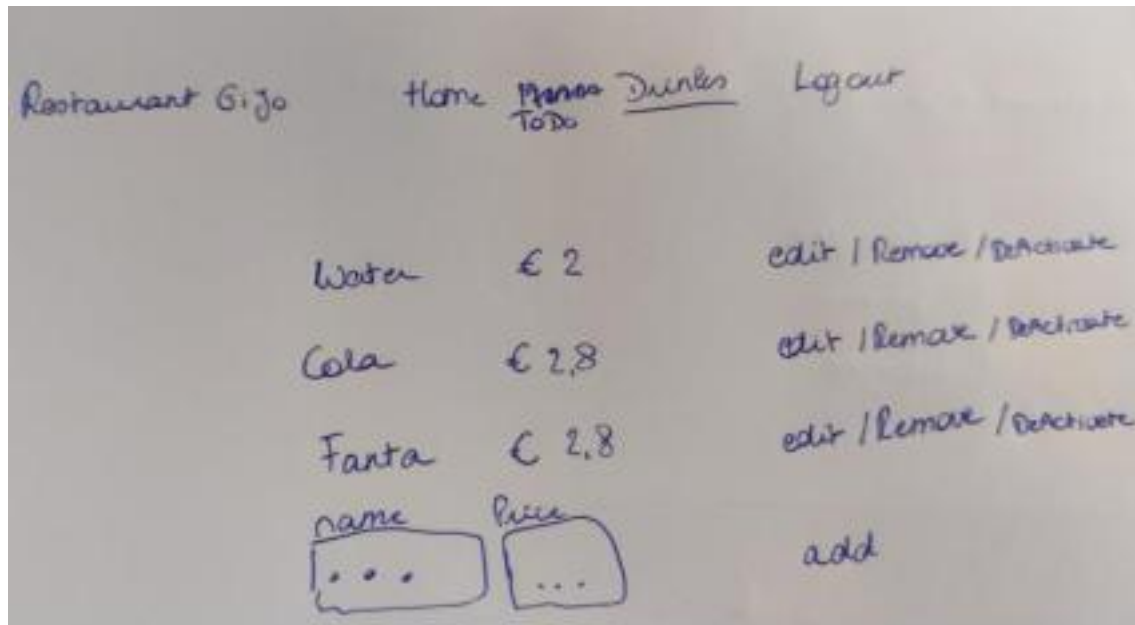 Restaurant Gijo Home Menus Drinks Logout
ToDo
Water € 2 edit / Remove / DeActivate
Cola € 2,8 edit / Remove / DeActivate
Fanta € 2,8 edit / Remove / DeActivate
name Price
... ... add